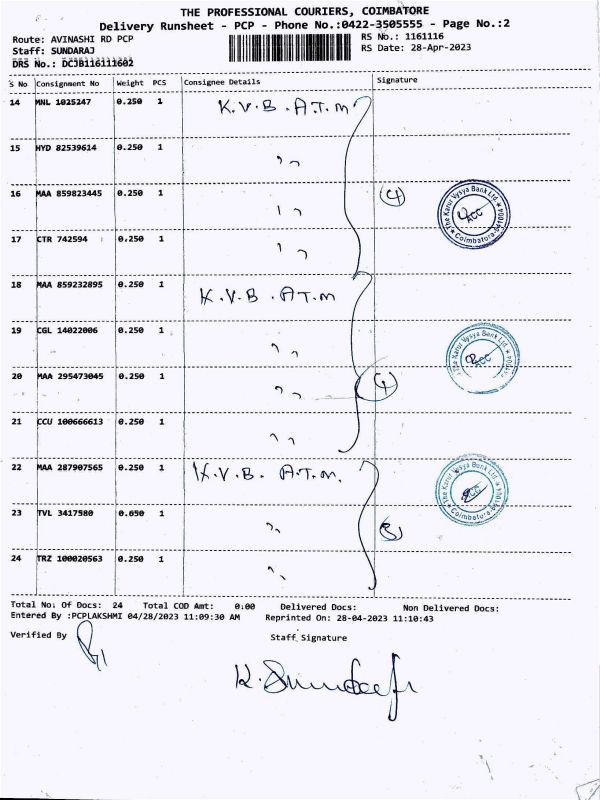 THE PROFESSIONAL COURIERS, COIMBATORE
Delivery Runsheet - PCP - Phone No.:0422-3505555 - Page No.:2
Route: AVINASHI RD PCP RS No.: 1161116
Staff: SUNDARAJ RS Date: 28-Apr-2023
DRS No.: DCJB116111602
S No Consignment No Weight PCS Consignee Details Signature
14 MNL 1025247 0.250 1 K.V.B. A.T.M
15 HYD 82539614 0.250 1 ,,
16 MAA 859823445 0.250 1 ,, 4
The Karur Vysya Bank Ltd. Coimbatore-641004
17 CTR 742594 0.250 1 ,,
18 MAA 859232895 0.250 1 K.V.B. A.T.M
19 CGL 14022006 0.250 1 ,,
The Karur Vysya Bank Ltd.
20 MAA 295473045 0.250 1 ,, 4
21 CCU 100666613 0.250 1 ,,
22 MAA 287907565 0.250 1 K.V.B. A.T.M.
The Karur Vysya Bank Ltd. Coimbatore
23 TVL 3417580 0.650 1 ,, 3
24 TRZ 100020563 0.250 1 ,,
Total No: Of Docs: 24 Total COD Amt: 0:00 Delivered Docs: Non Delivered Docs:
Entered By :PCPLAKSHMI 04/28/2023 11:09:30 AM Reprinted On: 28-04-2023 11:10:43
Verified By Staff Signature